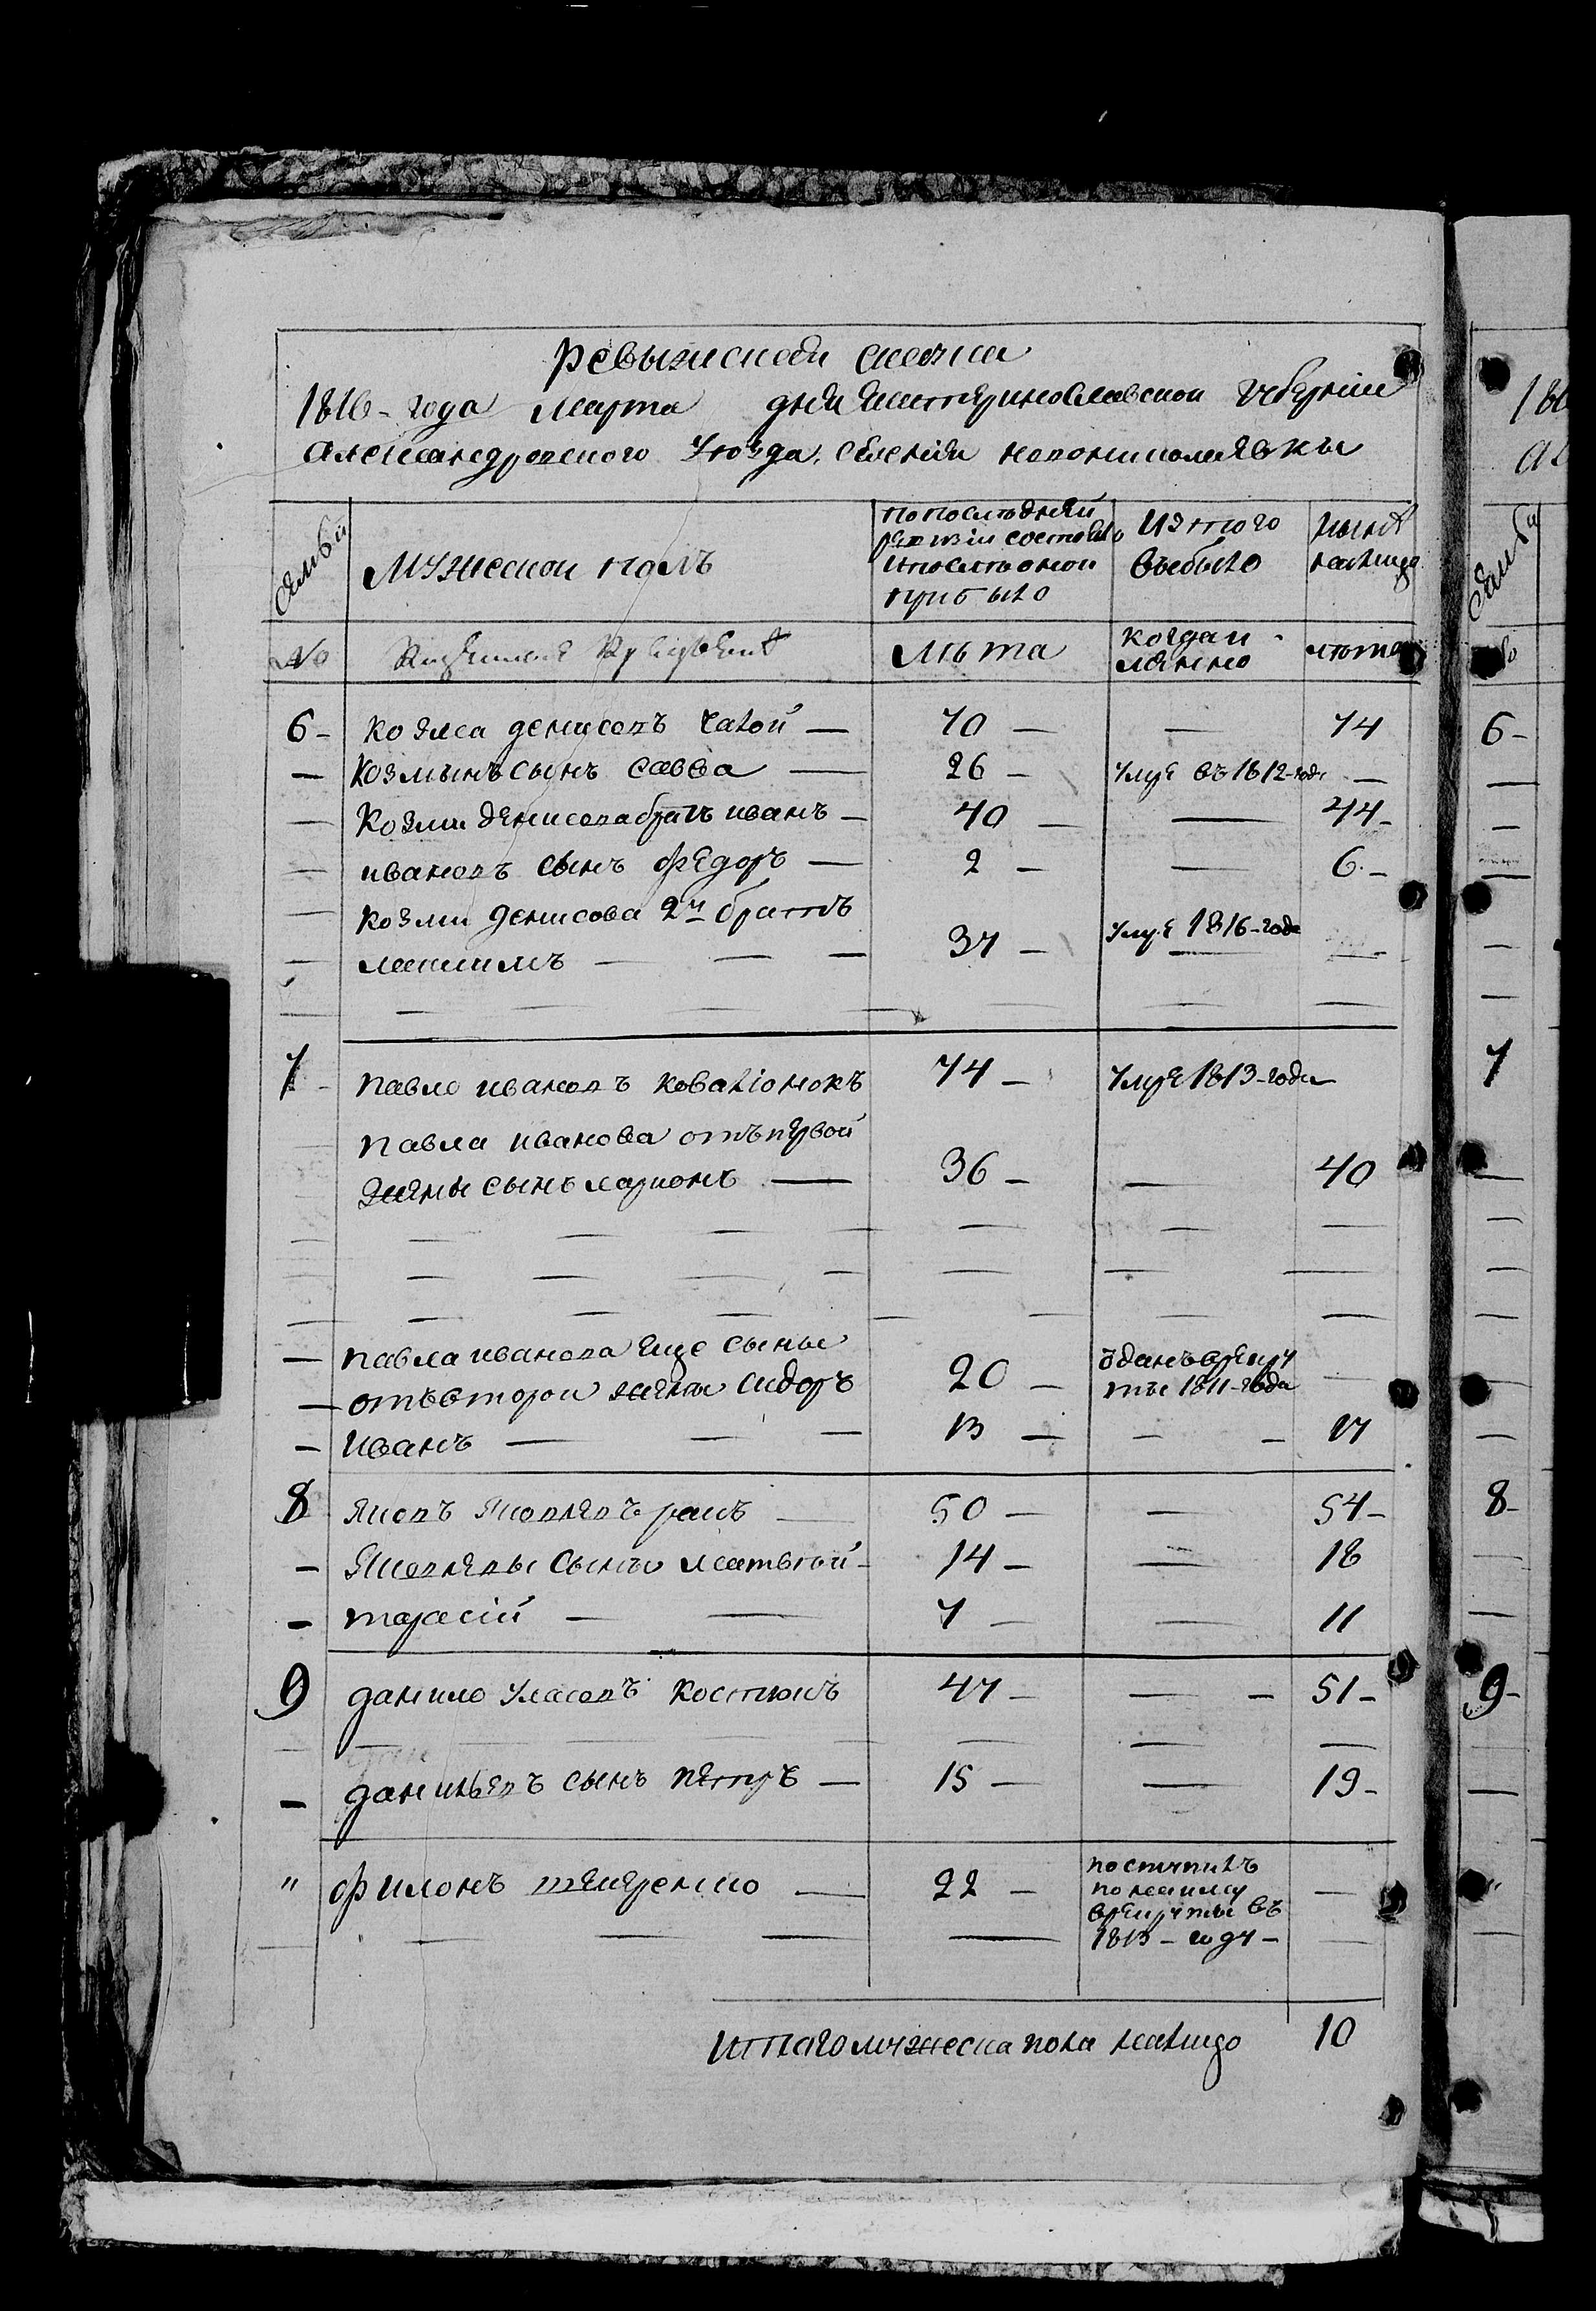 Ревизская сказка
1816 - года Марта дня Екатеринославской губернии
Александровского уезда, селения новониколаевки
Семьи
мужеской полъ
по последней ревизии состояло и после оной прибыло
Из того выбыло
Ныне налицо
№
лета
когда именно
лета
6 - козма денисовъ Чалой — 70 — — 74
— козминъ сынъ савва — 26 — умре въ 1812-годе —
— козми денисова братъ иванъ — 40 — — 44 -
— ивановъ сынъ федоръ — 2 — — 6 -
— козми денисова 2й братъ
— максимъ — — — 37 — умре 1816-года —
7 - павло ивановъ ковалюнокъ 74 — умре 1813-года
павла иванова отъ первой
жены сынъ ларионъ — 36 — — 40
— павла иванова еще сыны
— отъ второй жены сидоръ 20 — отданъ в рекруты 1811-года —
— иванъ — — — 13 — — — 17
8 Яковъ Яковлевъ ракъ — 50 — — 54 -
— Яковлевы сыны матвей - 14 — — 18
— тарасий — — 7 — — 11
9 данило Уласовъ костюкъ 47 — — — 51 -
— данильевъ сынъ петръ — 15 — — 19 -
" филонъ — 22 — поступилъ
по найму
в рекруты въ
1813 - году - —
Итаго мужеска пола налицо 10
186
6 -
7
8 -
9 -